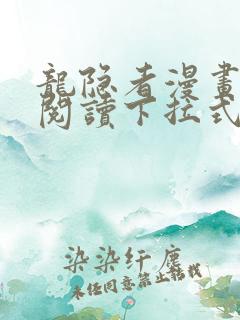 龍隐者漫畫
閱讀下拉式
染染纤塵
未经同意禁止转载